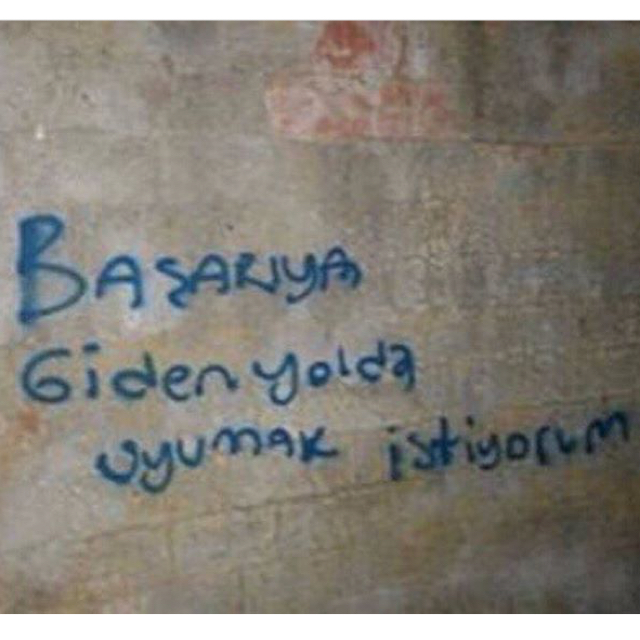 BAŞARIYA
Giden yolda
uyumak istiyorum